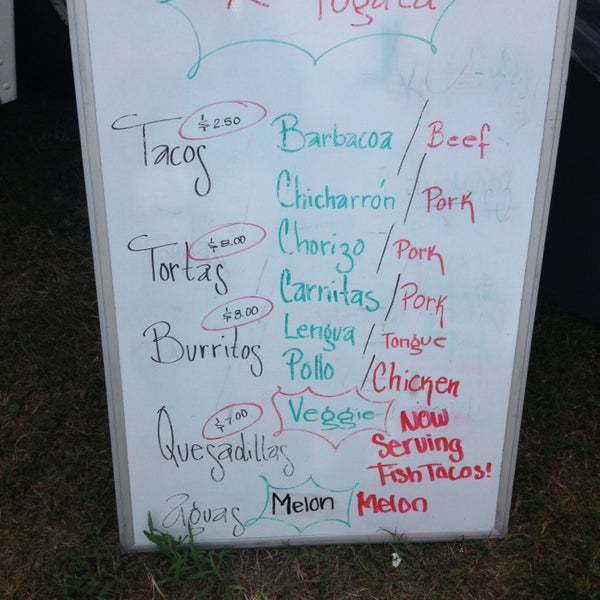 Tacos $2.50 Barbacoa / Beef
Chicharrón / Pork
Tortas $8.00 Chorizo / Pork
Carnitas / Pork
Burritos $8.00 Lengua / Tongue
Pollo / Chicken
Quesadillas $7.00 Veggie / Now
Serving
Fish Tacos!
aguas Melon Melon